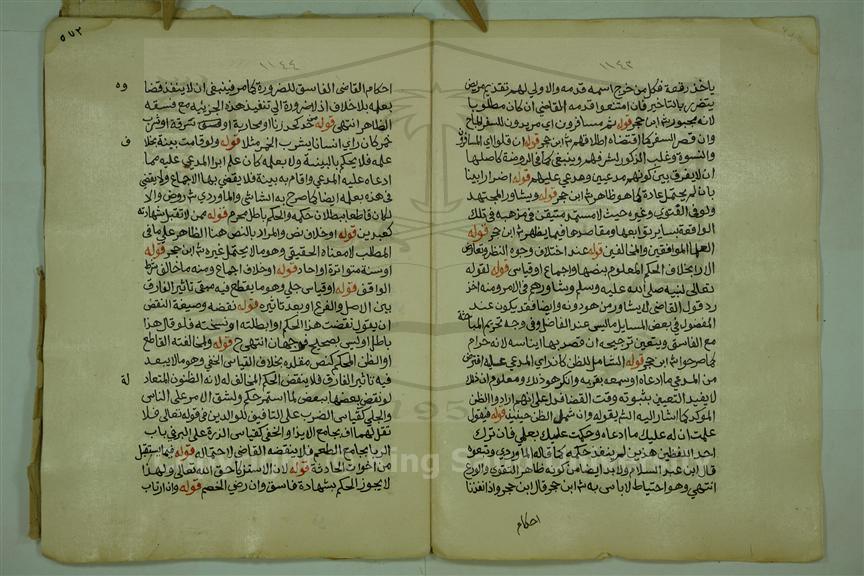 ١١٤٣
ياخذ رقعة فكل من خرج اسمه قدمه والاولى لهم تقديم مريض
يتضرر بالتاخير فان امتنعوا قدمه القاضي ان كان مطلوبا
لانه مجبور ش ابن حجر قوله مسافرون اي مريدون للسفر المباح
وان قصر السفر كما اقتضاه اطلاقهم ش ابن حجر قوله ان قلوا اي المسافرون
والنسوة وغلب الذكور لشرفهم وينبغي كما في الروضة كاصلها
ان لا يفرق بين كونهم مدعيين ومدعى عليهم قوله اضرارا بينا
بان لم يحتمل عادة كما هو ظاهر ش ابن حجر قوله ويشاور المجتهد
ولو في الفتوى وغيره حيث لا مستند متيقن في مذهبه في تلك
الواقعة بساير توابعها ومقاصدها فيما يظهر ش ابن حجر قوله
العلما الموافقين والمخالفين قوله عند اختلاف وجوه النظر وتعارض
الاراء بخلاف الحكم المعلوم بنص او اجماع او قياس قوله لقوله
تعالى لنبيه صلى الله عليه وسلم وشاورهم في الامر ومنه اخذ
رد قول القاضي لا يشاور من هو دونه وايضا فقد يكون عند
المفضول في بعض المسايل ما ليس عند الفاضل وفي وجه تحريم المباحثة
مع الفاسق ويتعين ترجيحه ان قصد بها ايناسه لانه حرام
كما صرحوا ش ابن حجر قوله الشامل للظن كان راى المدعى عليه اقترض
من المدعي ما ادعاه او سمعه يقر به وانكر هو ذلك ومعلوم ان ذلك
لا يفيد التعين بثبوته وقت القضا فدل على انهم ارادوا الظن
الموكد كما اشار اليه الش بقوله وان شمل الظن حينئذ قوله فيقول
علمت ان له عليك ما ادعاه وحكمت عليك بعلمي فان ترك
احد اللفظين هذين لم ينفذ حكمه كما قاله الماوردي وتبعوه
قال ابن عبد السلام ولا بد ايضا من كونه ظاهر التقوى والورع
انتهى وهو احتياط لا باس به ش ابن حجر قال ابن حجر واذا نفذنا
احكام
٥٧٢
١١٤٤
احكام القاضي الفاسق للضرورة كما مر فينبغي ان لا ينفذ قضاوه
بعلمه بلا خلاف اذ لا ضرورة الى تنفيذ هذه الجزئية مع فسقه
الظاهر انتهى قوله كحد زنا او محاربة او سرقة او شرب
خمر كان راى انسانا يشرب الخمر مثلا قوله ولو قامت بينة بخلاف
علمه فلا يحكم بالبينة ولا بعلمه كان علم ابرا المدعي عليه مما
ادعاه عليه المدعي واقام به بينة فلا يقضي بها بالاجماع ولا يقضي
في هذه بعلمه ايضا كما صرح به الشاشي والماوردي ش روض والا
لكان قاطعا ببطلان حكمه والحكم بالباطل محرم قوله ممن لا تقبل شهادته
كعبدين قوله او خلاف نص والمراد بالنص هنا الظاهر على ما في
المطلب لا معناه الحقيقي وهو ما لا يحتمل غيره ش ابن حجر قوله
او سنة متواترة او احاد قوله او خلاف اجماع ومنه ما خالف شرط
الواقف قوله او قياس جلي وهو ما يقطع فيه بنفي تاثير الفارق
بين الاصل والفرع او بعد تاثيره قوله نقضه وصيغة النقض
ان يقول نقضت هذا الحكم او ابطلته او نسخته فلو قال هذا
باطل او ليس بصحيح فوجهان انتهى ح قوله ومخالفته القاطع
او الظن المحكم كنص مقلده بخلاف القياس الخفي وهو ما لا يبعد
فيه تاثير الفارق فلا ينقض الحكم المخالف له لانه الظنون المتعادلة
لو نقض بعضها ببعض لما استمر حكم ولشق الامر على الناس
والجلي كقياس الضرب على التافيف للوالدين في قوله تعالى فلا
تقل لهما اف بجامع الايذا والخفي كقياس الذرة على البر في باب
الربا بجامع الطعم فلا ينقضه القاضي لاحتماله قوله فيما يستقبل
من اخوات الحادثة قوله لان الاستزكا حق الله تعالى ولهذا
لا يجوز الحكم بشهادة فاسق وان رضي الخصم قوله وان ارتاب